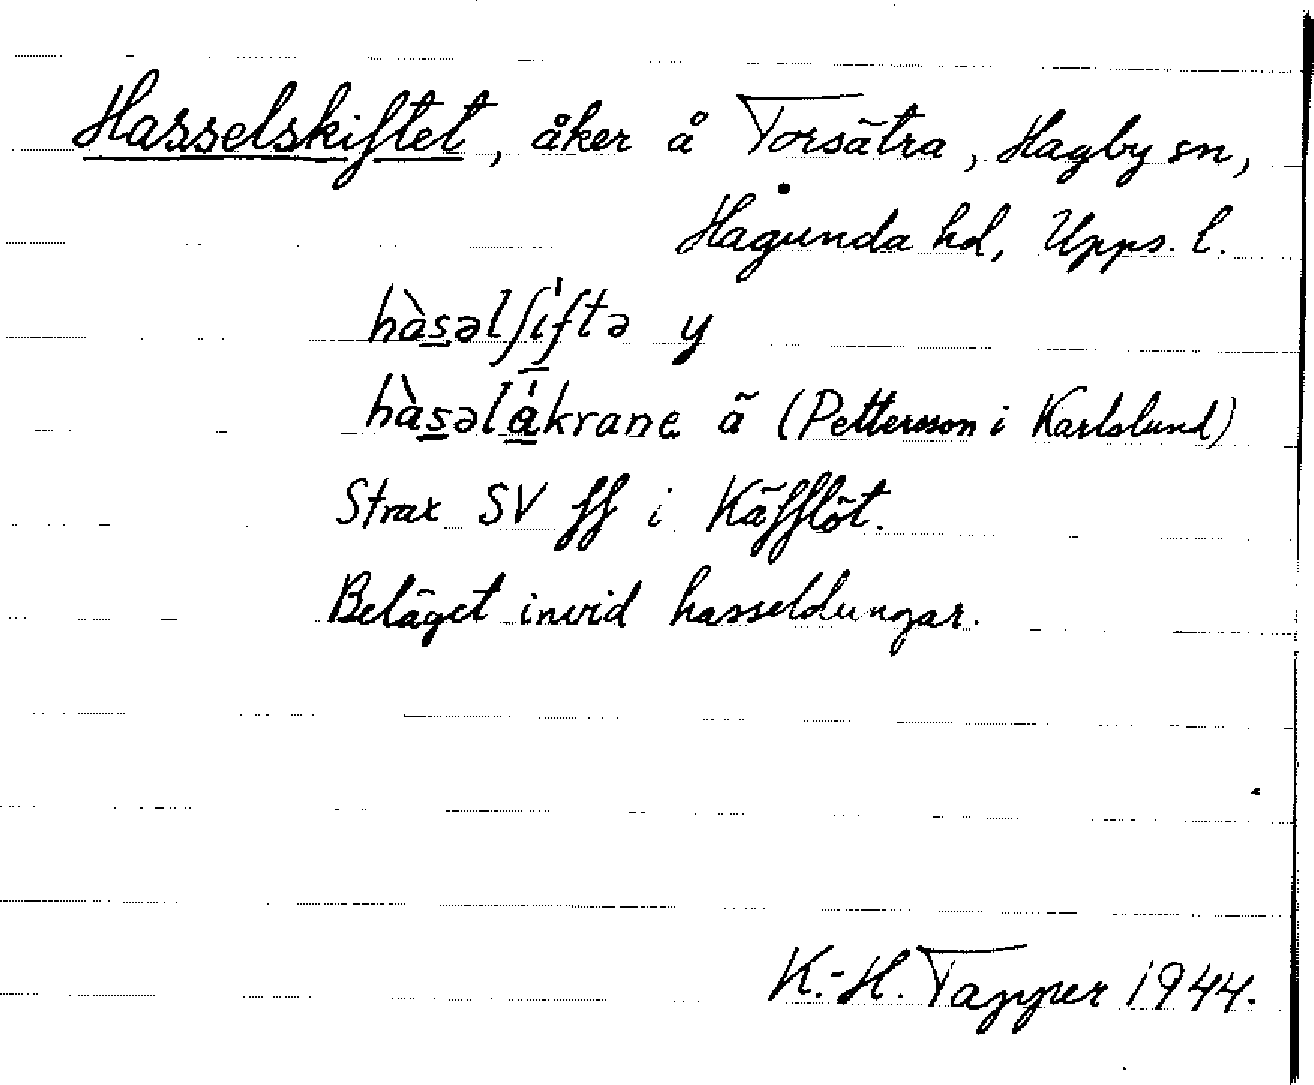 Hasselskiftet, åker å Torsätra, Hagby sn,
Hagunda hd, Upps. l.
hàsəlʃíftə y
hàsəlákrane ä (Pettersson i Karlslund)
Strax SV ff i Käfflöt.
Beläget invid hasseldungar.
K.-H. Tapper 1944.